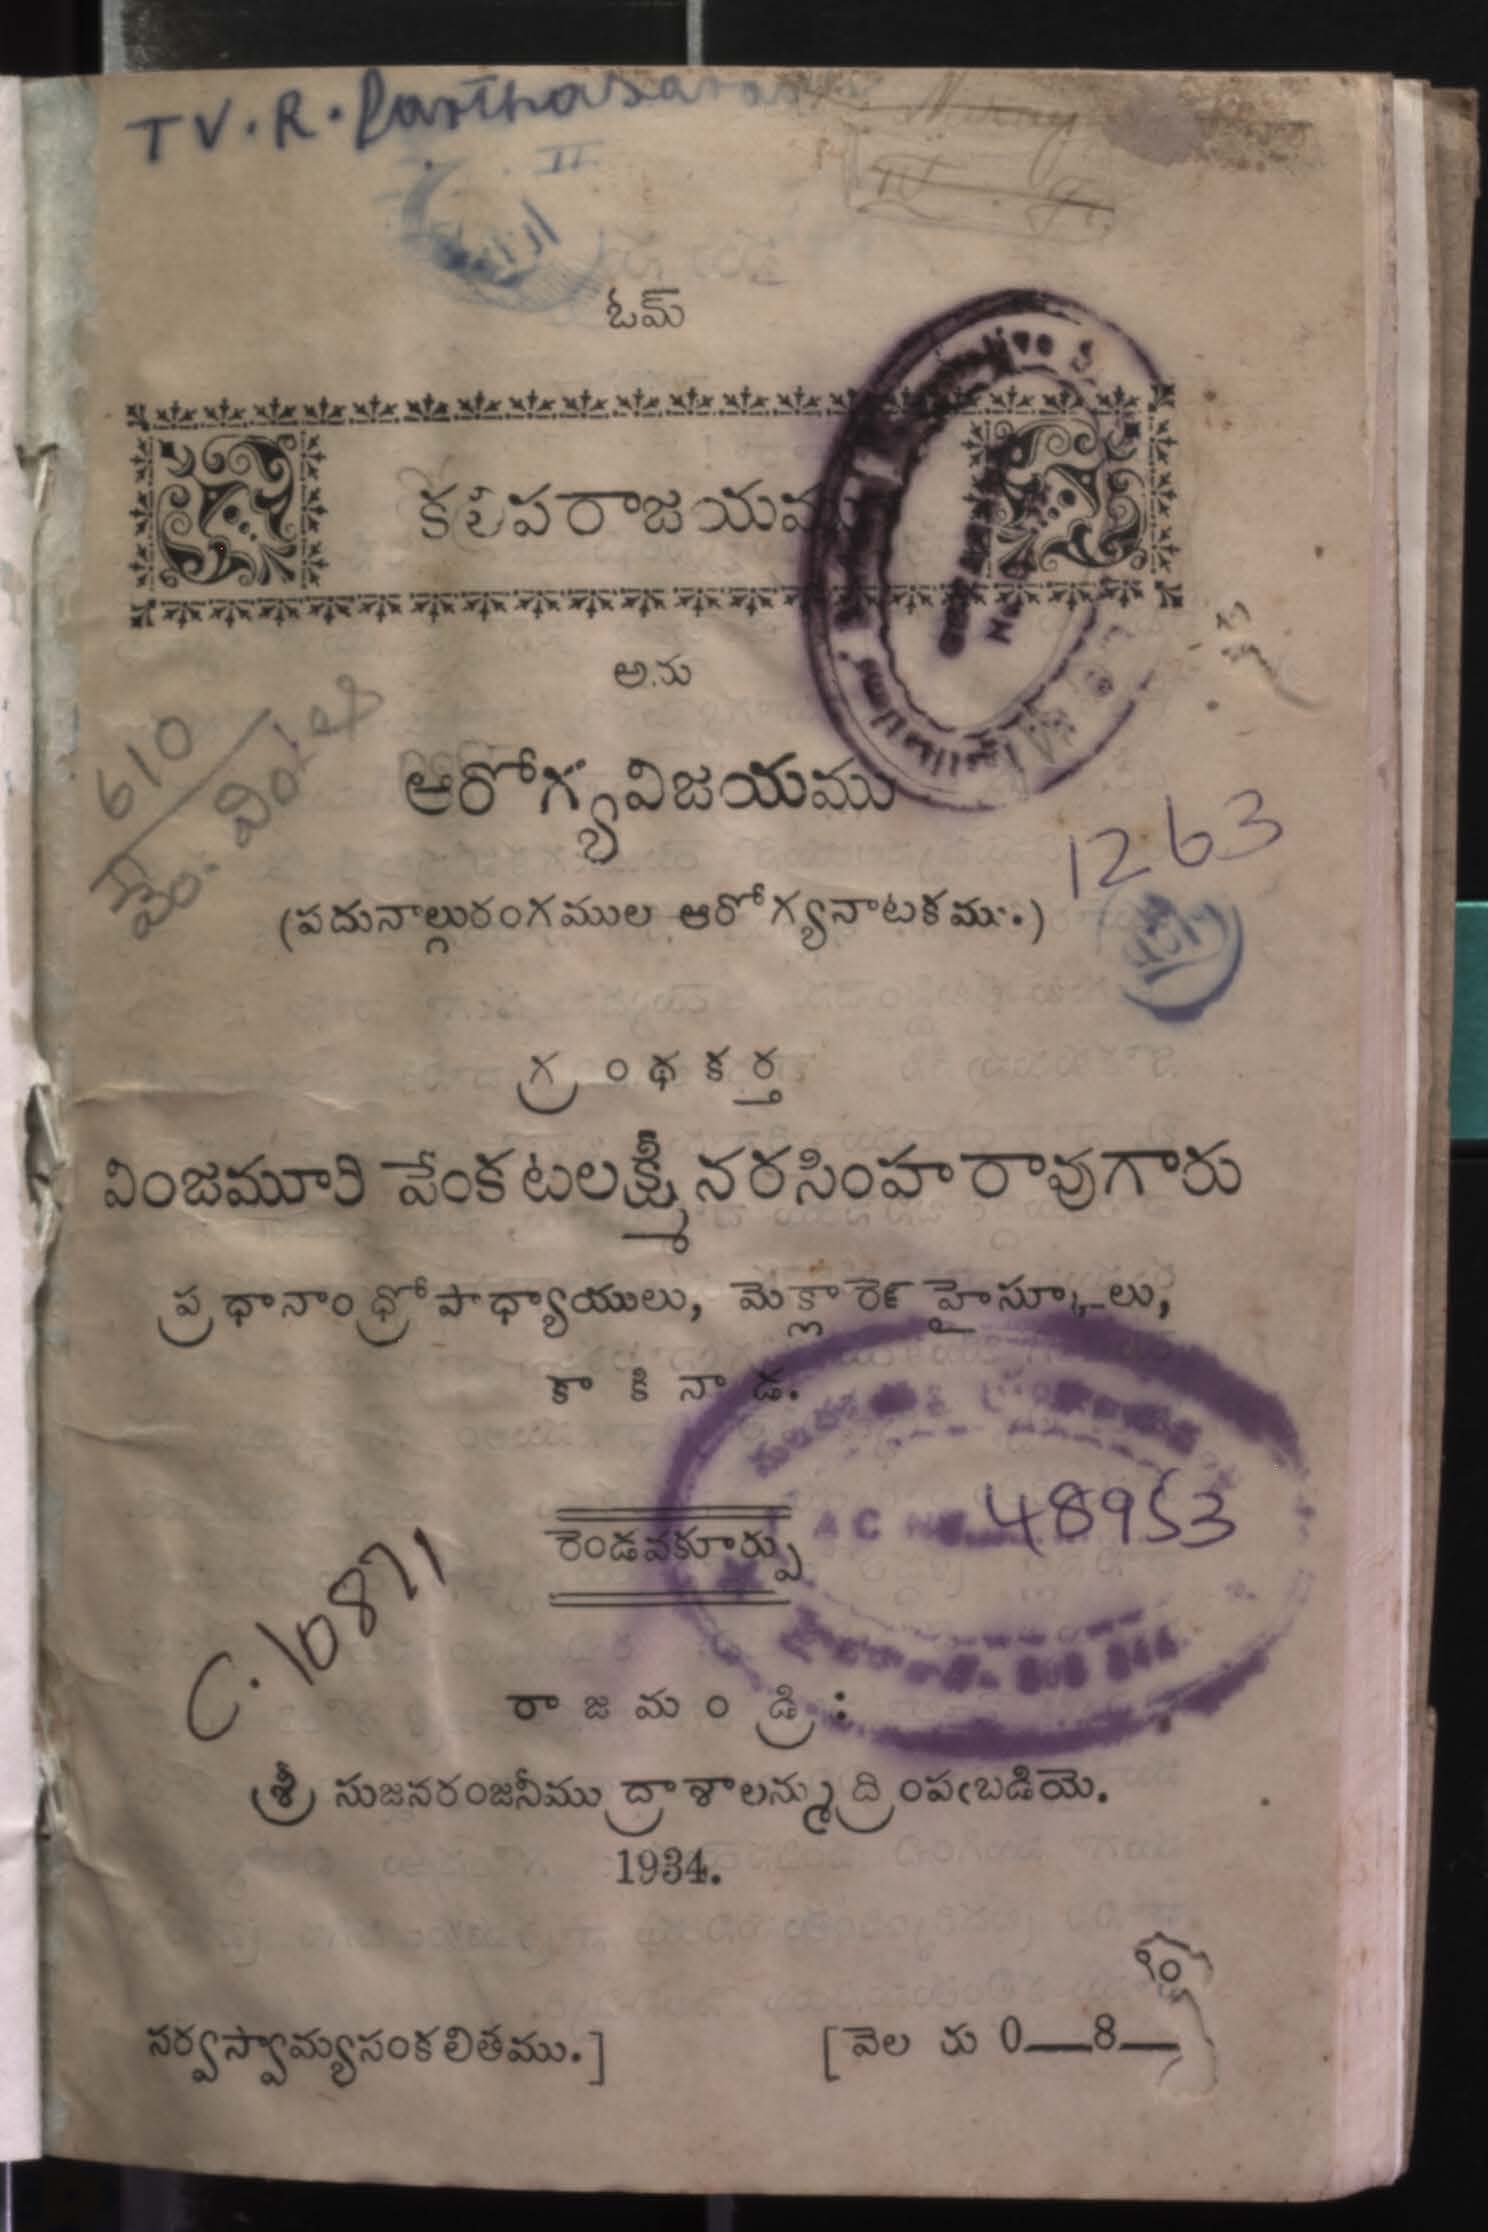 TV. R. Parthasarathi
II
ఓమ్
కలిపరాజయము
అను
610
వేం. విం. ల
ఆరోగ్యవిజయము
1263
(పదునాల్గురంగముల ఆరోగ్యనాటకము.)
గ్రంథకర్త
వింజమూరి వేంకటలక్ష్మీనరసింహరావుగారు
ప్రధానాంధ్రోపాధ్యాయులు, మెక్లారెన్ హైస్కూలు,
కాకినాడ.
AC No. 48953
రెండవకూర్పు
C. 10871
రాజమండ్రి:
శ్రీ సుజనరంజనీముద్రాశాలన్ముద్రింపఁబడియె.
1934.
సర్వస్వామ్యసంకలితము.] [వెల రు 0—8—